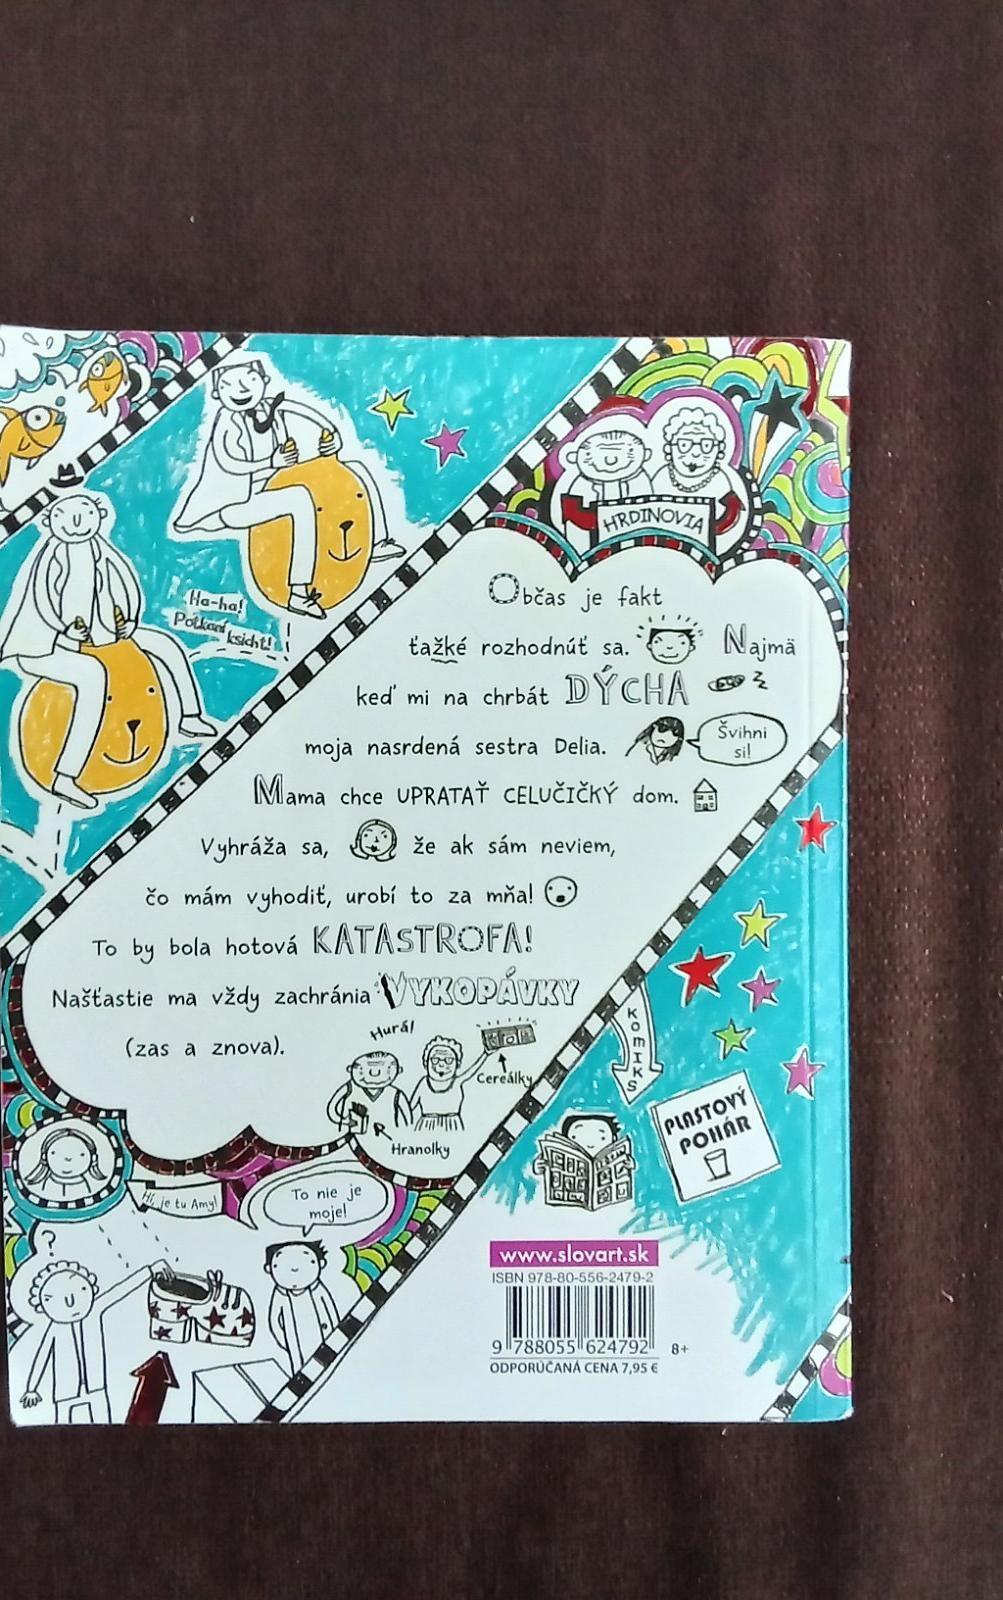 HRDINOVIA
Ha-ha!
Potkaní ksicht!
Občas je fakt
ťažké rozhodnúť sa. Najmä
keď mi na chrbát DÝCHA
zz
moja nasrdená sestra Delia.
Švihni
si!
Mama chce UPRATAŤ CELUČIČKÝ dom.
Vyhráža sa, že ak sám neviem,
čo mám vyhodiť, urobí to za mňa!
To by bola hotová KATASTROFA!
Našťastie ma vždy zachránia VYKOPÁVKY
(zas a znova).
Hurá!
Cereálky
Hranolky
KOMIKS
PLASTOVÝ
POHÁR
Hi, je tu Amy!
To nie je
moje!
?
www.slovart.sk
ISBN 978-80-556-2479-2
9 788055 624792
8+
ODPORÚČANÁ CENA 7,95 €